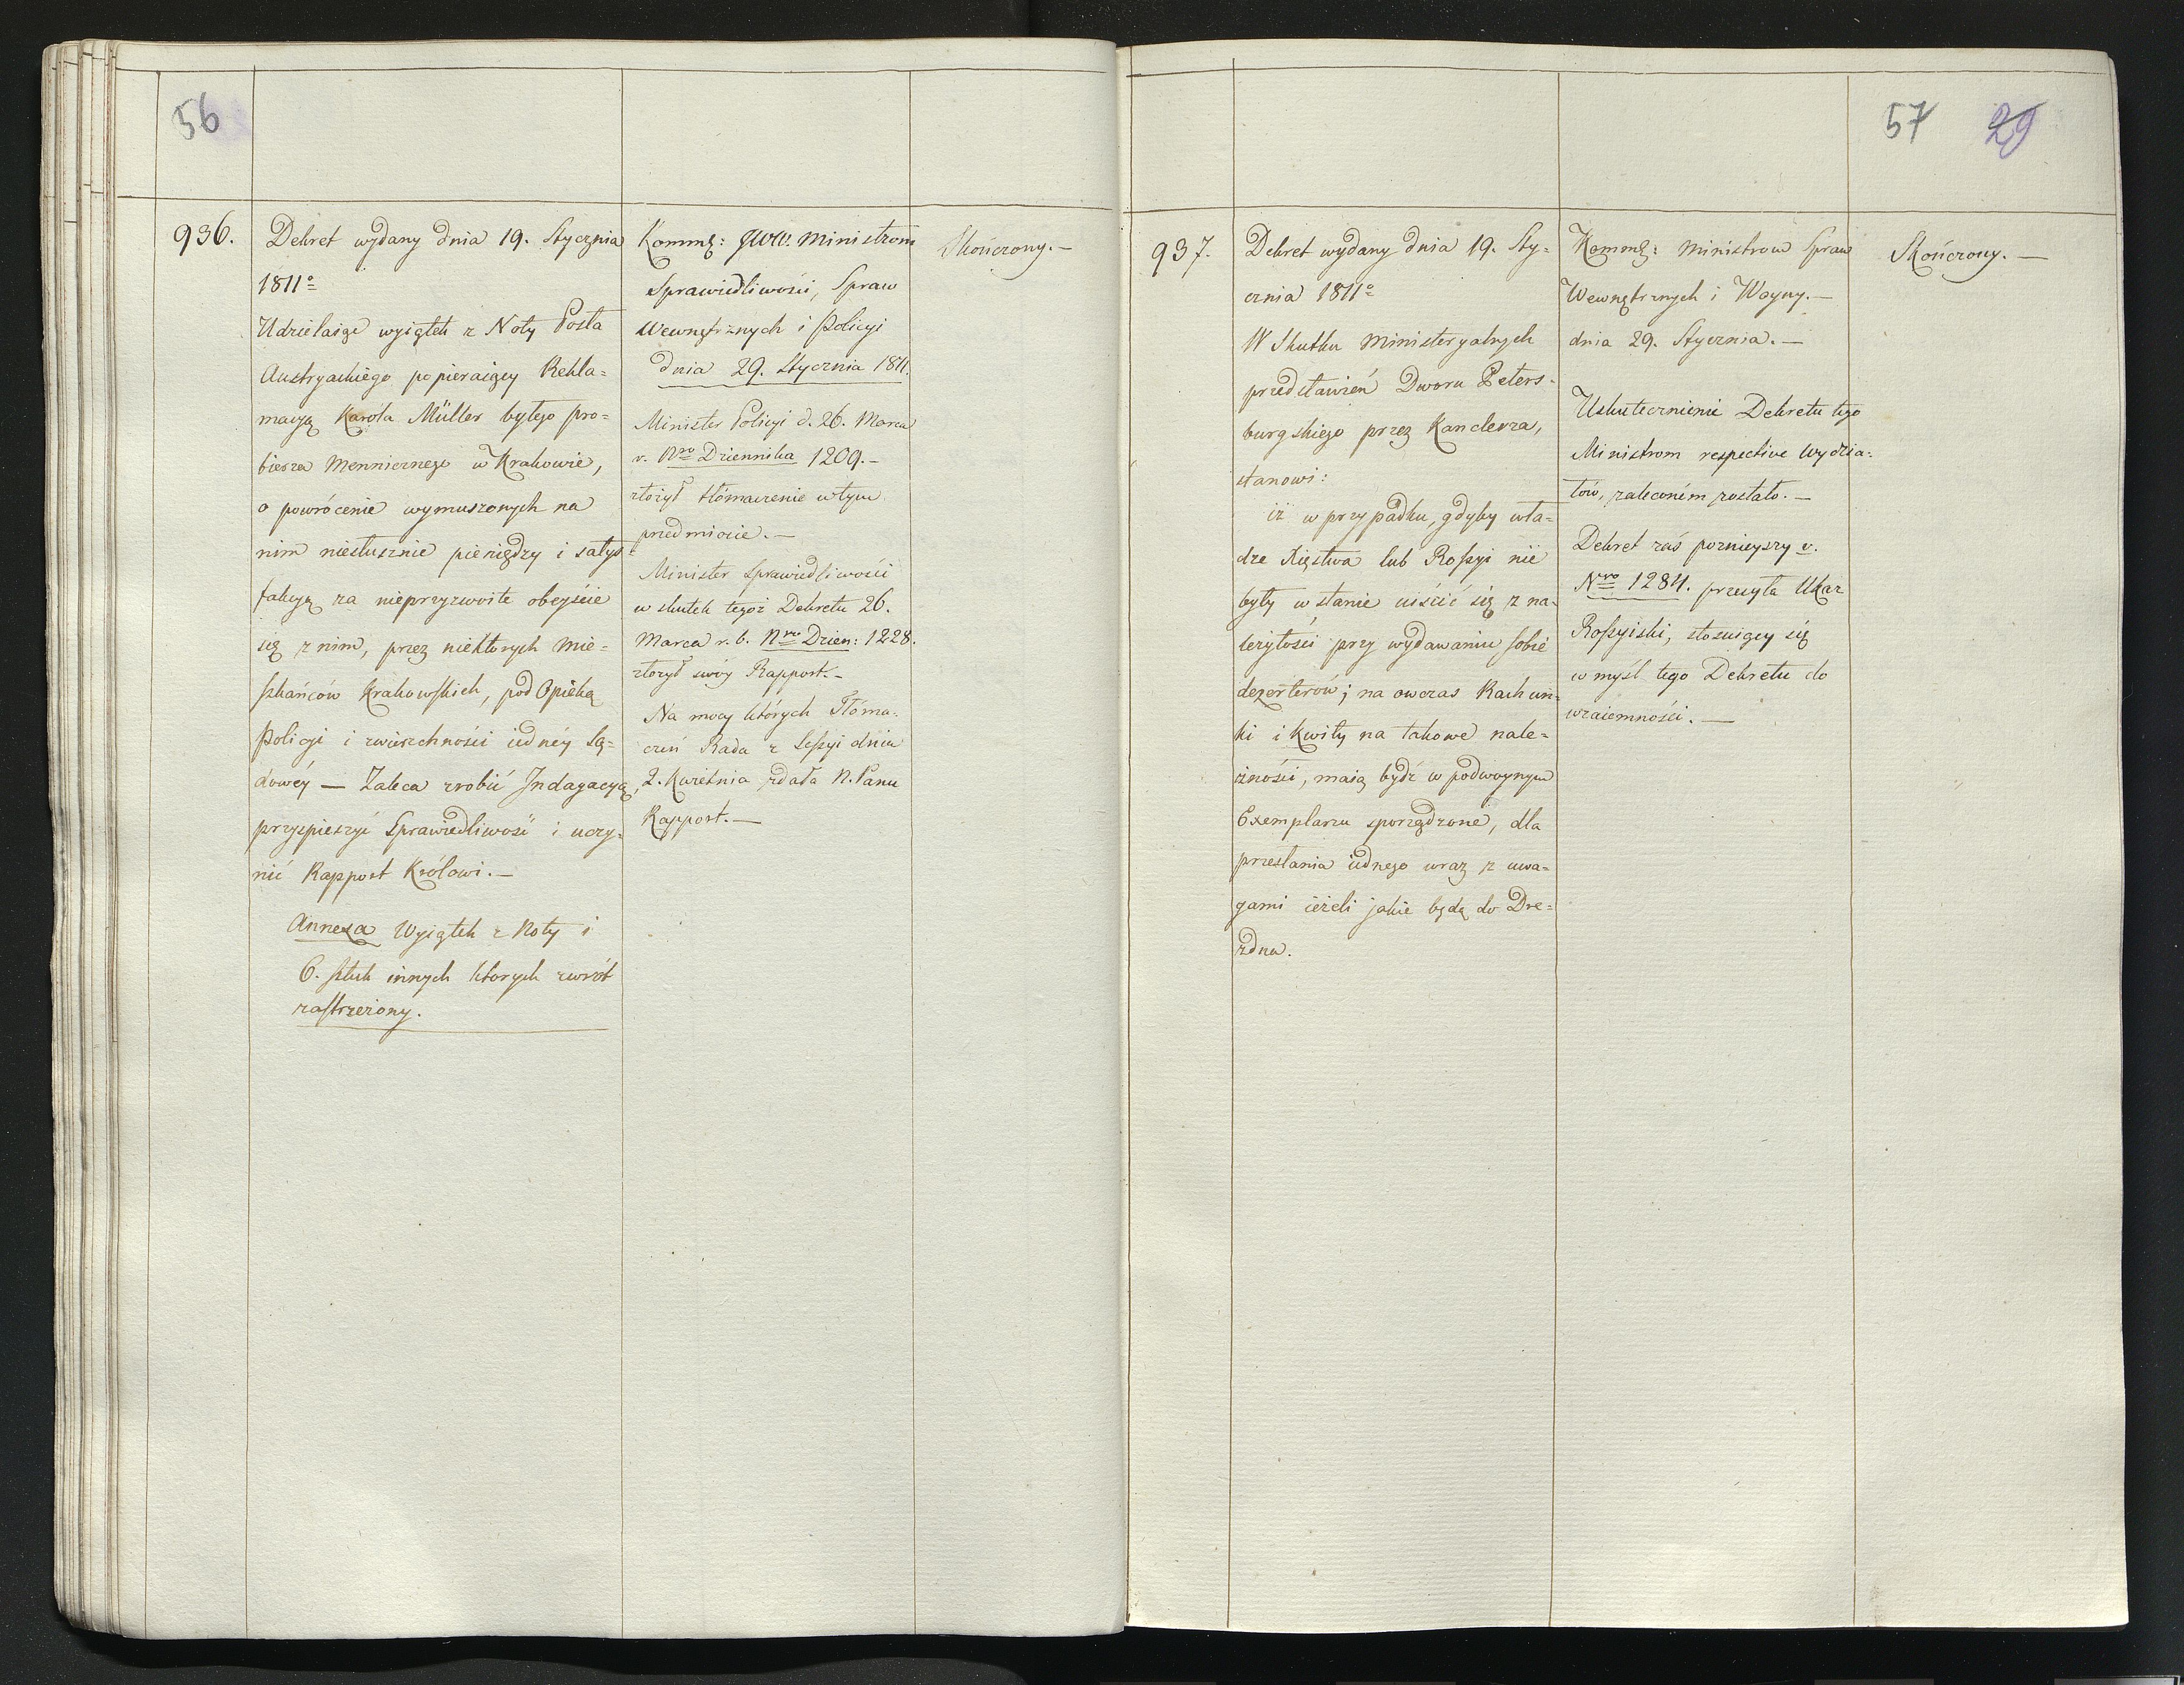 56
936.
Dekret wydany dnia 19. Stycznia
1811º
Udzielaiąc wyiątek z Noty Posła
Austryackiego popieraiący Rekla=
macyą Karola Müller byłego pro=
bierza Mennicznego w Krakowie,
o powrócenie wymuszonych na
nim niesłusznie pieniędzy i satys=
fakcyą za nieprzyzwoite obeyście
się z nim, przez niektorych Mie=
szkańców Krakowskich, pod Opieką
Policyi i zwierzchności iednéy Są=
dowéy — Zaleca zrobić Indagacyą,
przyspieszyć Sprawiedliwość i uczy=
nić Rappost Królowi. —
Annexa Wyiątek z Noty i
6. sztuk innych ktorych zwrót
zastrzeżony.
Kommẽ: JWW. Ministrom
Sprawiedliwości, Spraw
Wewnętrznych i Policyi
dnia 29. Stycznia 1811.
Minister Policyi d. 26. Marca
v. Nro Dziennika 1209. –
złożył tłómaczenie w tym
przedmiocie. —
Minister Sprawiedliwości
w skutek tegoż Dekretu 26.
Marca r. b. Nro Dzien: 1228.
złożył swóy Rapport. –
Na mocy których Tłóma=
czeń Rada z Sessyi dnia
2. Kwietnia zdała N. Panu
Rapport. —
Skończony. —
57 29
937.
Dekret wydany dnia 19. Sty=
cznia 1811º
W Skutku Ministeryalnych
przedstawień Dworu Peters=
burgskiego przez Kanclerza,
stanowi:
iż w przypadku, gdyby wła=
dze Xięstwa lub Rossyi nie
były w stanie uiścić się z na=
leżytości przy wydawaniu sobie
dezerterów; na owczas Rachun=
ki i Kwity na takowe nale=
żności, maią bydź w podwoynym
Exemplarzu sporządzone, dla
przesłania iednego wraz z uwa=
gami ieżeli jakie będą do Dre=
zdna.
Kommẽ: Ministrow Spraw
Wewnętrznych i Woyny. —
dnia 29. Stycznia. —
Uskutecznienie Dekretu tego
Ministrom respective Wydzia=
łów, zaleconém zostało. —
Dekret zaś poznieyszy v.
Nro 1284. przesyła Ukaz
Rossyiski, stosuiący się
w myśl tego Dekretu do
wzaiemności. —
Skończony. —